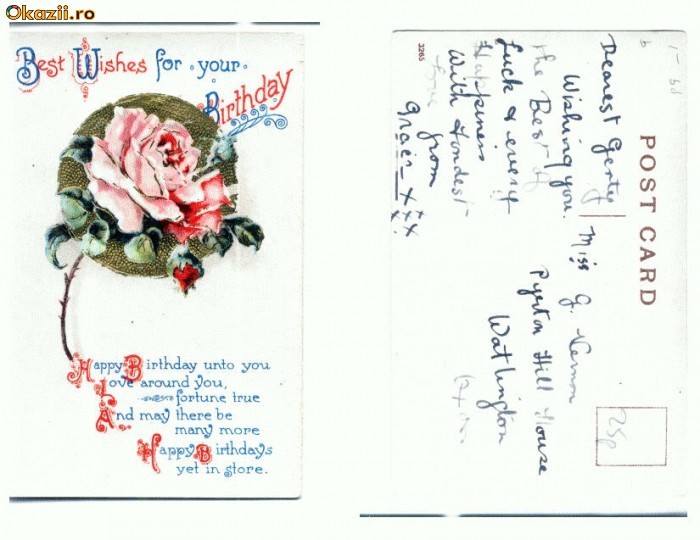 Okazii.ro
Best Wishes for your
Birthday
Happy Birthday unto you
Love around you,
fortune true
And may there be
many more
Happy Birthdays
yet in store.
3265
POST CARD
Dearest Gerty
Wishing you
the Best of
Luck & every
Happiness
With Fondest
Love
from
xxx
Miss G. Vernon
Pyrton Hill House
Watlington
25p
b